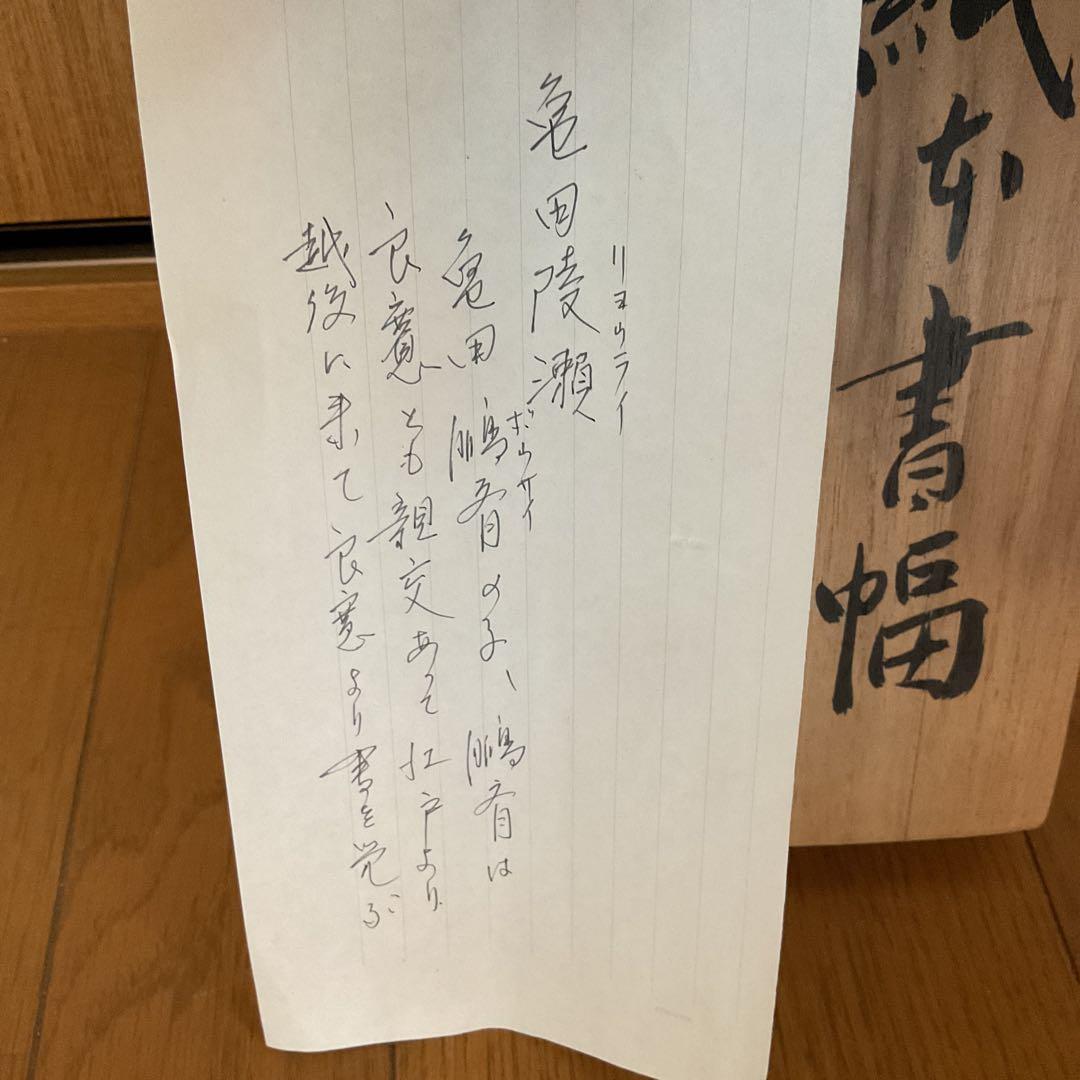 紙本書幅
リヨウライ
亀田陵瀬
ボウサイ
亀田鵬斎の子、鵬斎は
良寛とも親交あって江戸より
越後に来て良寛より書を学ぶ